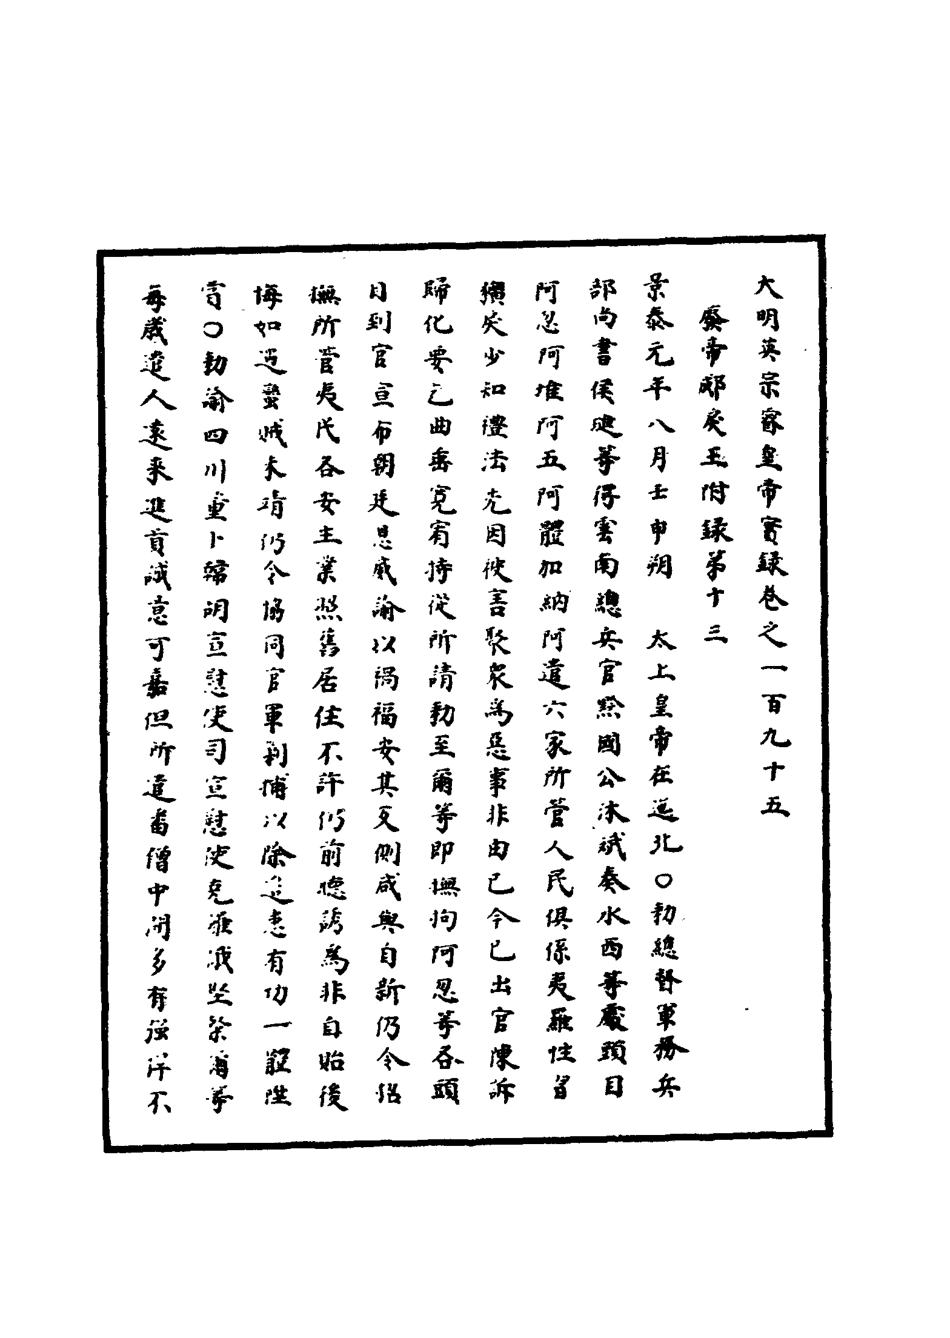 大明英宗睿皇帝實録卷之一百九十五
廢帝郕戾王附録第十三
景泰元年八月壬申朔 太上皇帝在迤北○勑總督軍務兵
部尚書侯璡等得雲南總兵官黔國公沐斌奏水西等處頭目
阿忽阿堆阿五阿體加納阿遣六家所管人民俱係夷羅性習
獷戾少知禮法先因被害聚衆為惡事非由已今已出官陳訴
歸化要乞曲垂寛宥持從所請勑至爾等即撫拘阿忽等各頭
目到官宣布朝廷恩威諭以禍福安其反側咸與自新仍令招
撫所管夷民各安生業照舊居住不許仍前聽誘為非自始後
悔如遇蠻賊未靖仍令協同官軍剿捕以除邊患有功一體陞
賞○勑諭四川董卜韓胡宣慰使司宣慰使克羅俄堅粲爾等
每歲遣人遠来進貢誠意可嘉但所遣畨僧中間多有強洋不